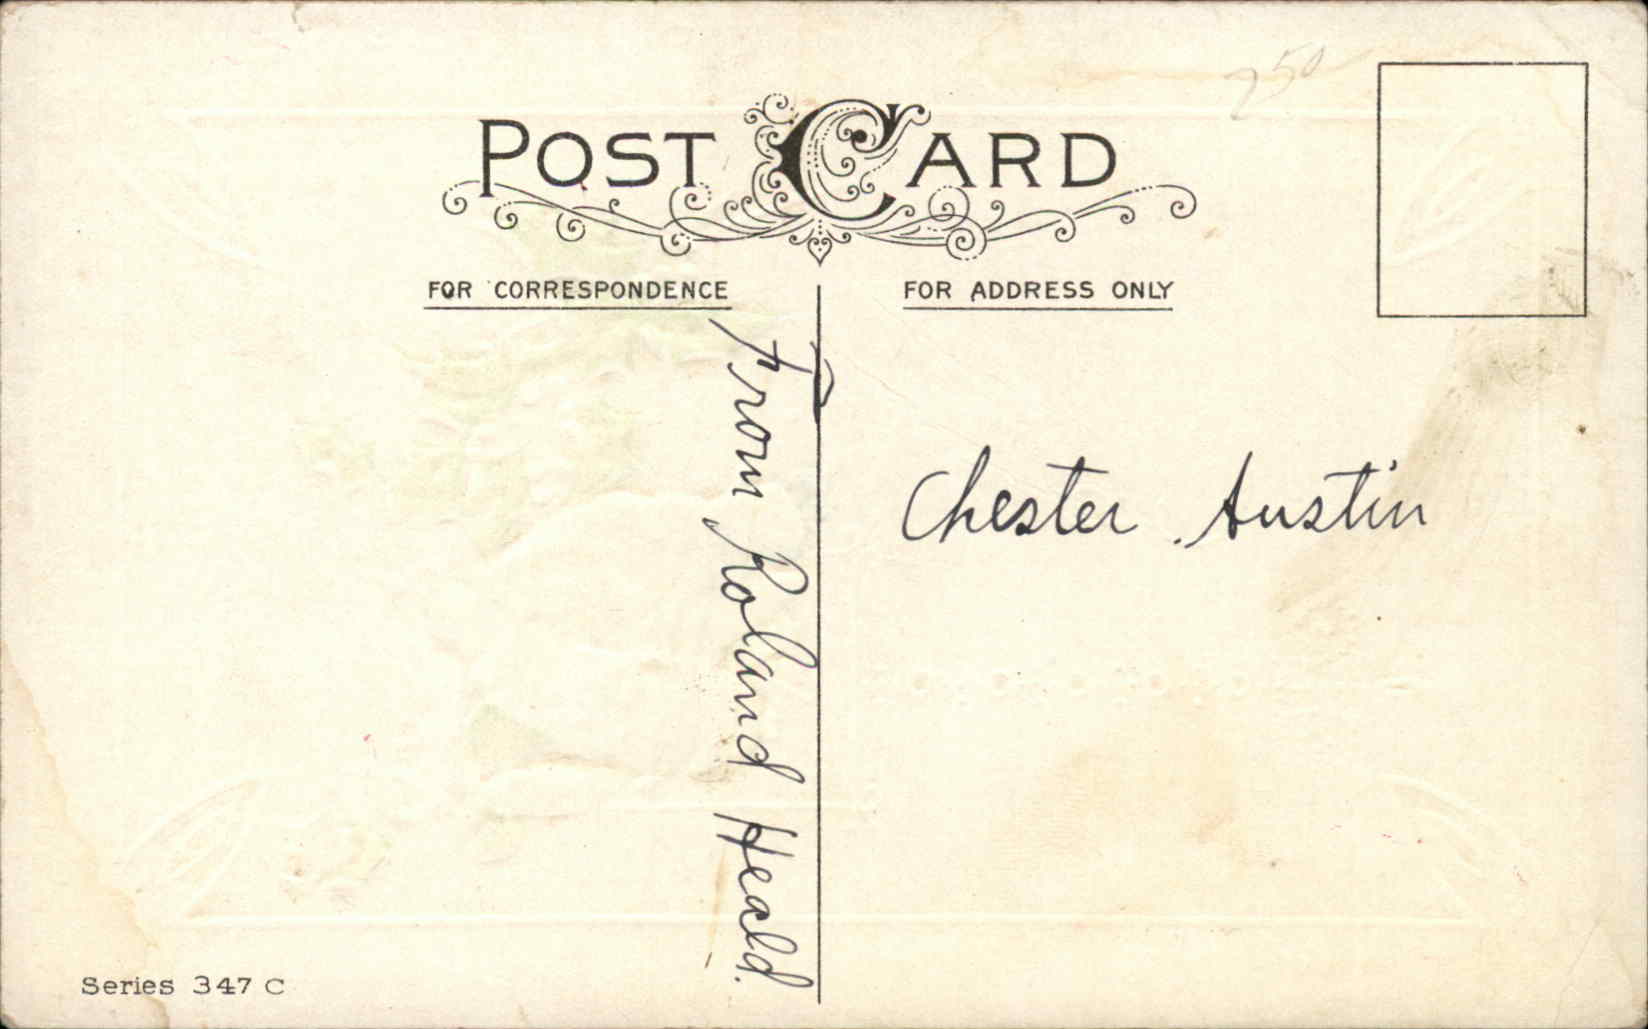 250
POST CARD
FOR CORRESPONDENCE
FOR ADDRESS ONLY
From Roland Heald.
Chester Austin
Series 347 C